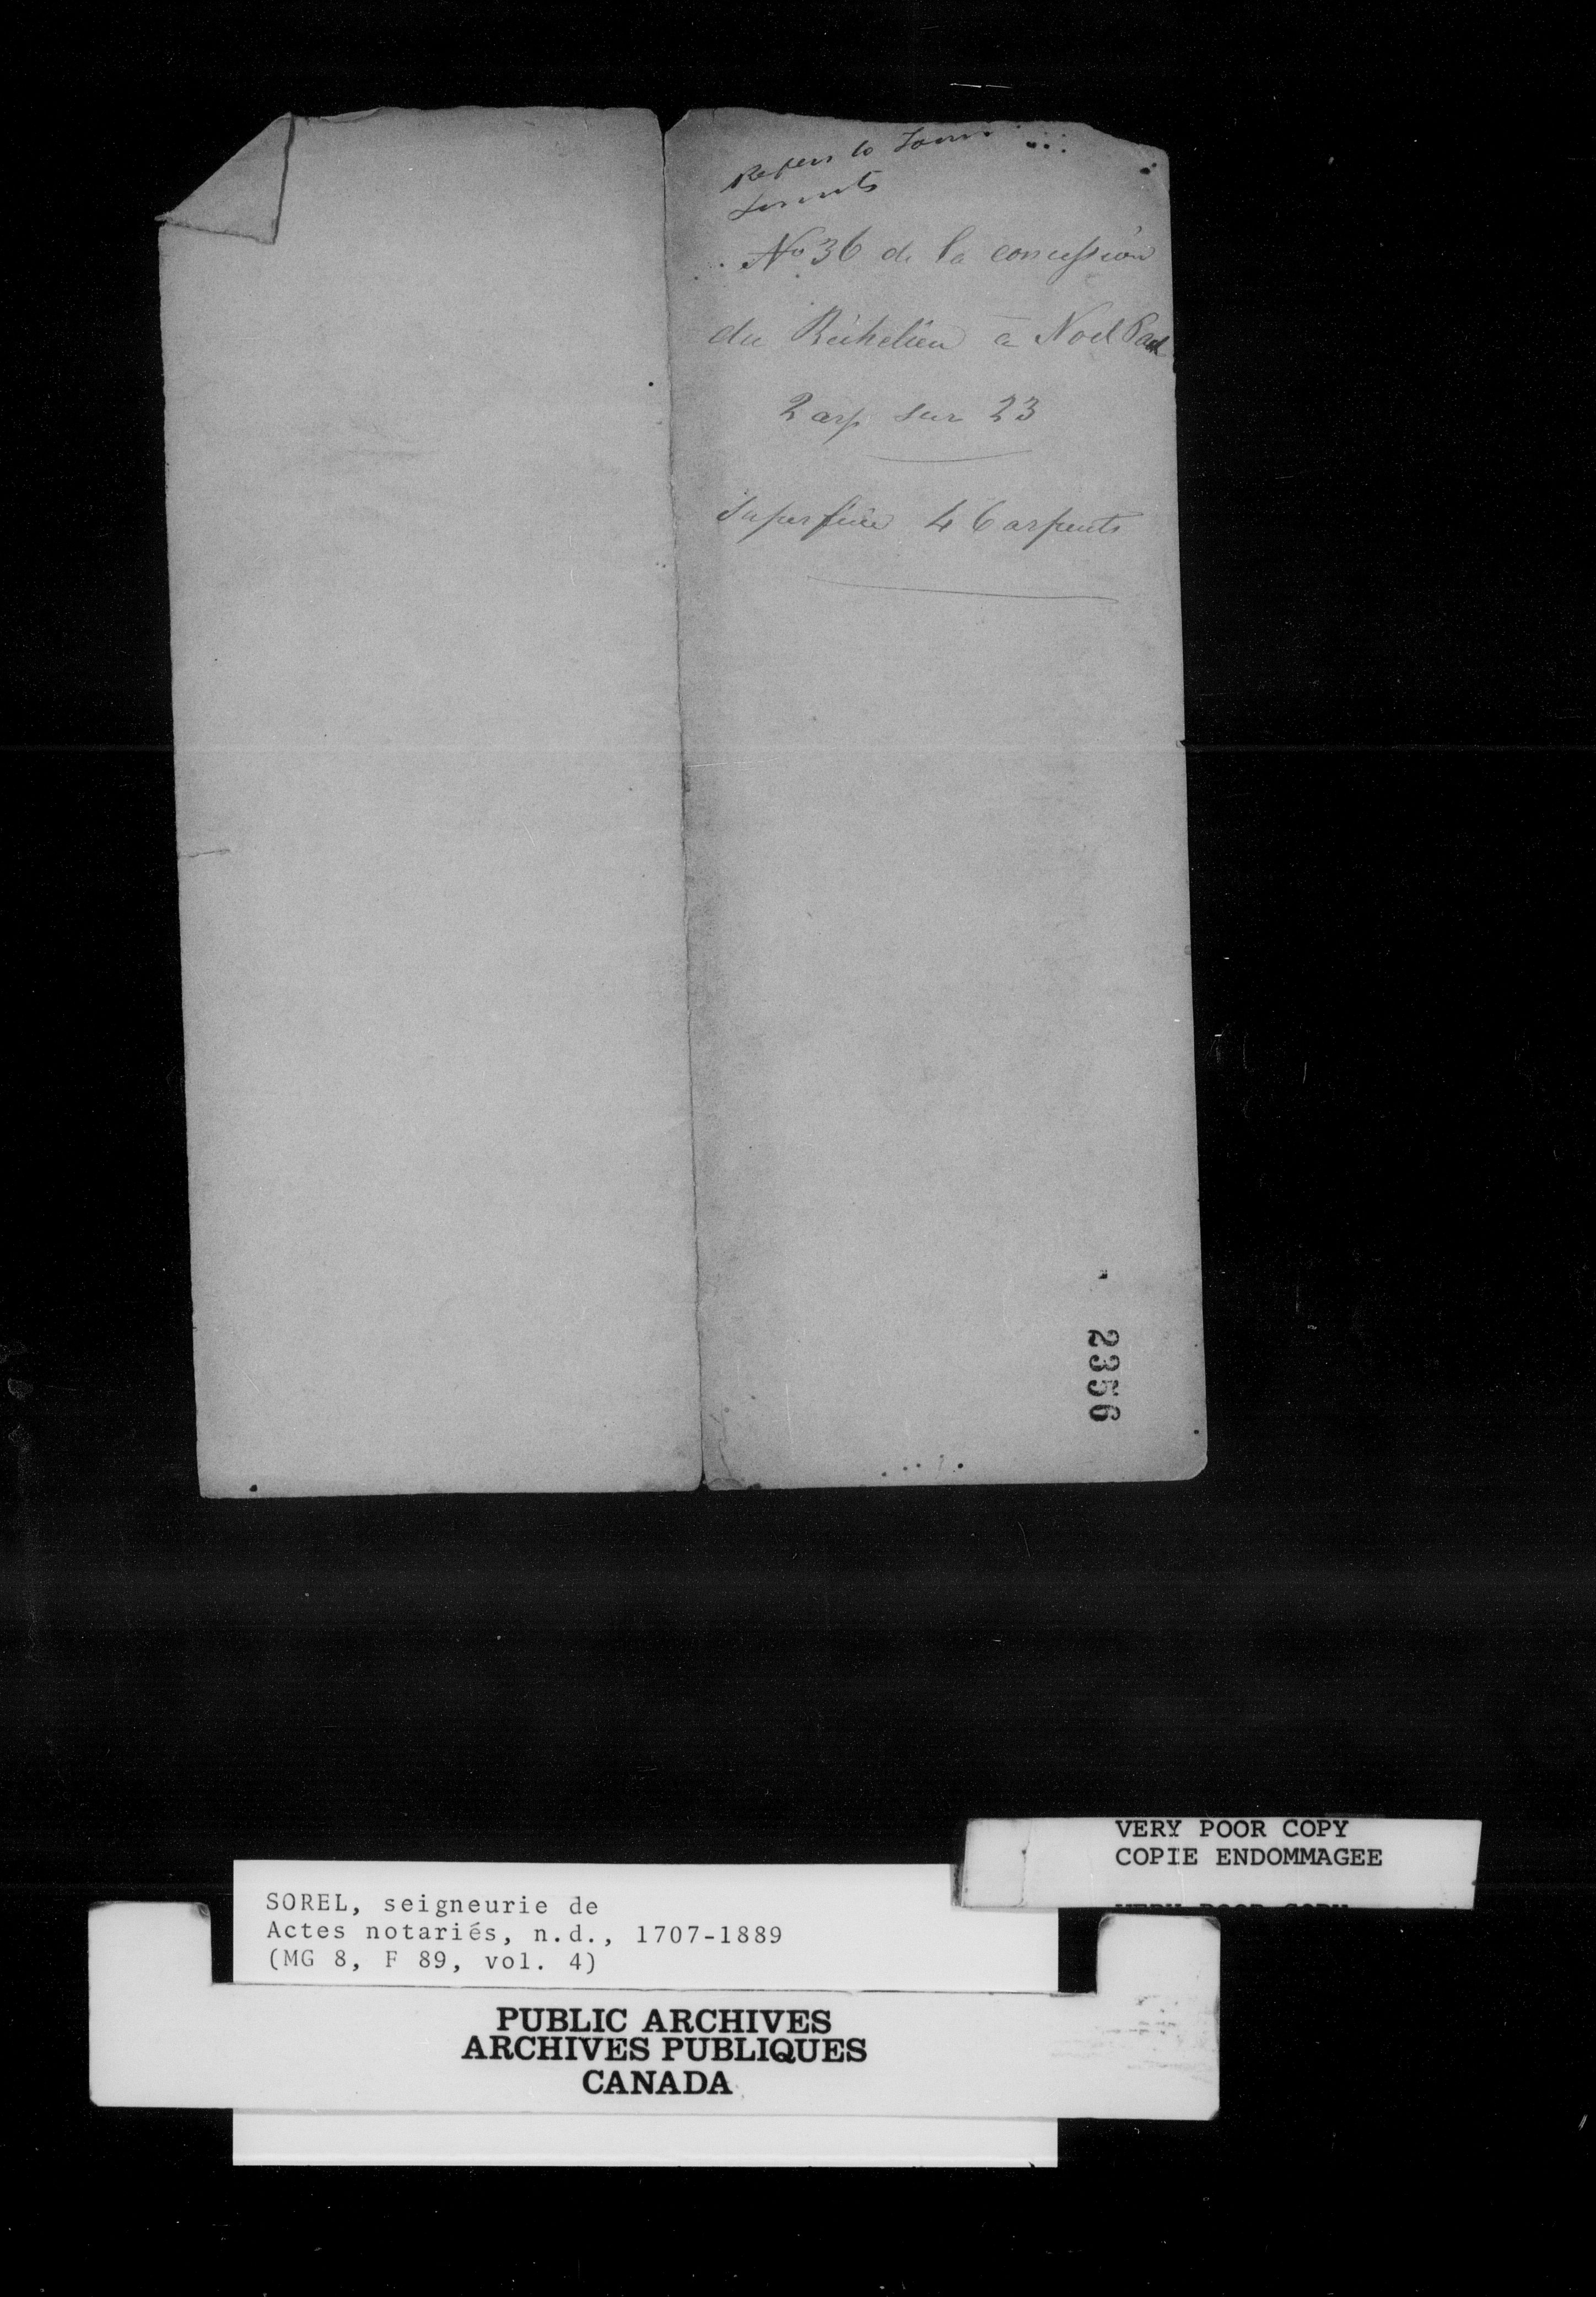 Refers to
No 36 de la concession
du Richelieu à Noel Paul
2 arp sur 23
Superficie 46 arpents
2356
VERY POOR COPY
COPIE ENDOMMAGEE
VERY POOR COPY
SOREL, seigneurie de
Actes notariés, n.d., 1707-1889
(MG 8, F 89, vol. 4)
PUBLIC ARCHIVES
ARCHIVES PUBLIQUES
CANADA